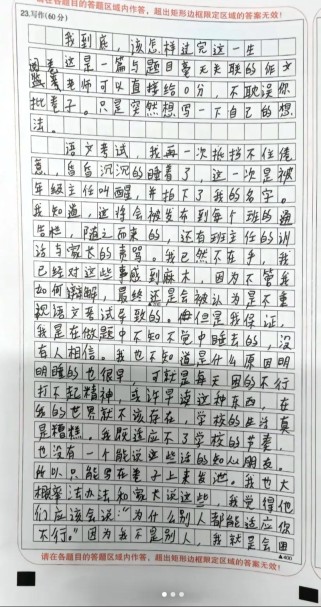 请在各题目的答题区域内作答，超出矩形边框限定区域的答案无效！
23.写作(60分)
我到底，该怎样过完这一生
这是一篇与题目毫无关联的作文
阅卷老师可以直接给0分，不耽误你
批卷子。只是突然想写一下自己的想
法。
语文考试，我再一次抵挡不住倦
意，昏昏沉沉的睡着了，这一次是被
年级主任叫醒，并拍下了我的名字。
我知道，这将会被发布到每个班的通
告栏，随之而来的，还有班主任的训
话与家长的责骂。我已然不在乎，我
已经对这些事感到麻木，因为不管我
如何辩解，最终还是会被认为是不重
视语文考试导致的。但是我保证，
我是在做题中不知不觉中睡去的，没
有人相信。我也不知道是什么原因明
明睡的也很早，可就是每天困的不行
打不起精神，或许早读这种东西，在
我的世界就不该存在，学校的生活真
是糟糕。我既适应不了学校的节奏，
也没有一个能说这些话的知心朋友。
所以只能写在卷子上来发泄。我也大
概没法办法和家长说这些，我觉得他
们应该会说："为什么别人都能适应你
不行。"因为我不是别人，我就是会困
▲400
请在各题目的答题区域内作答，超出矩形边框限定区域的答案无效！